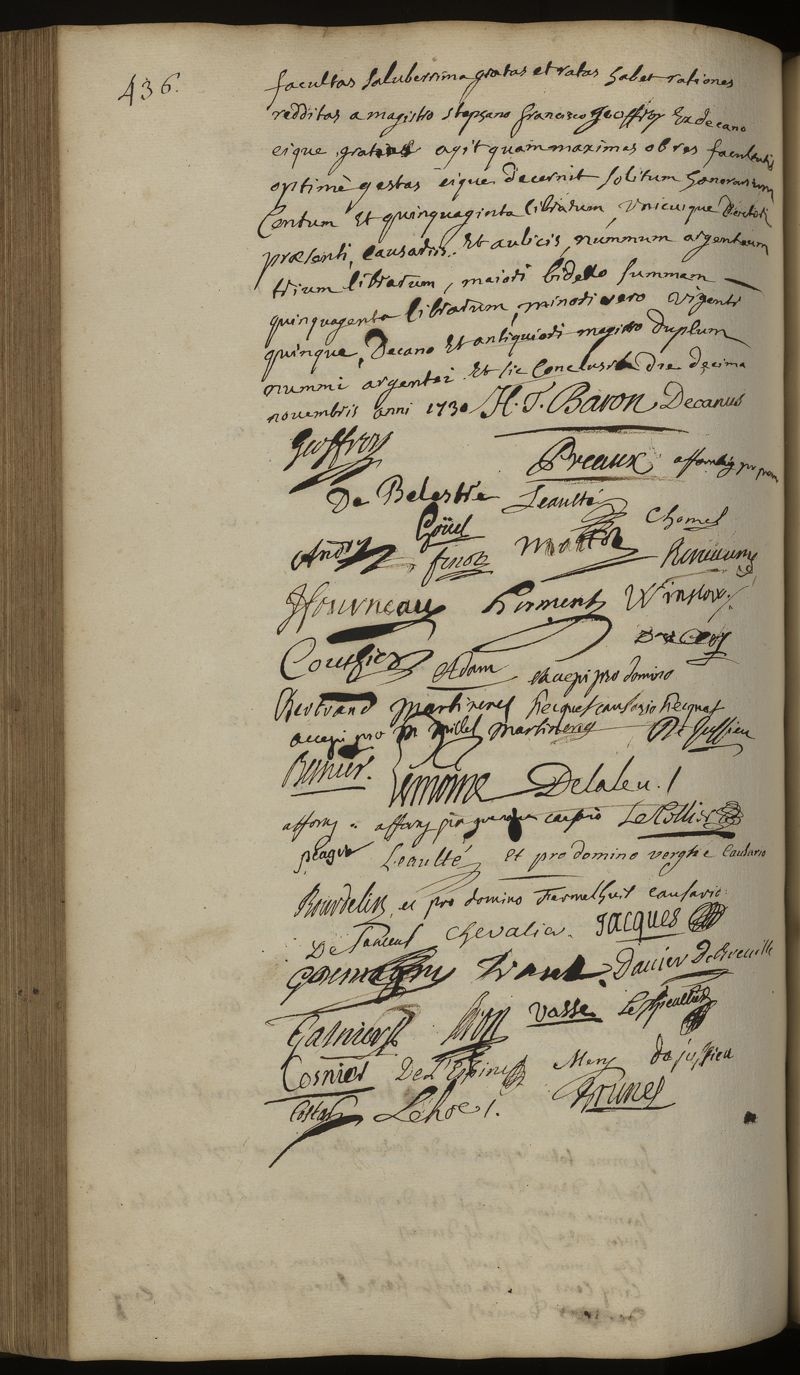 436.
facultas saluberrima gratas et ratas habet rationes
redditas a magistro stephano francisco Geoffroy Exdecano
eique gratias agit quam maximas ob res facultatis
optimè gestas eique decernit solitum honorarium
Centum Et quinquaginta librarum, Vnicuique Doctori
præsenti, causariis. Et aulicis, nummum argenteum
trium librarum, maiori bidello summam
quinquagenta librarum, minori vero viginti
quinque, Decano Et antiquiori magistro duplum
nummi argentei. Et sic Conclusit Die decima
novembris anni 1730 H. T. Baron Decanus
Geoffroy
Preaux
De Belestre Leaulté
Andry Goüel finot Chomel
Reneaume
ffourneau herment Winslow
Couthier Adam accepi pro domino
Bertrand Martinencq hecquet causario hecquet
accepi pro M Millet Martinencq De Jussieu
Bernier. Lemoine Delaleu
Le Tollier
Leaulté et pro domino Causario
Bourdelin, et pro domino causario
Chevalier. Jacques
Davier De Breuille
Garnier Bron Vasse
Cosnier De L'Epine Mery de jussieu
Costar Lehoc. Brunel